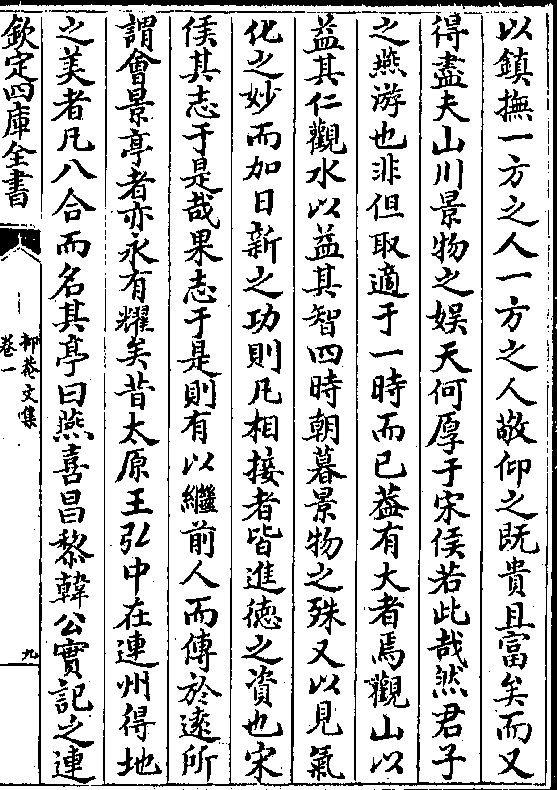 以鎮撫一方之人一方之人敬仰之既貴且富矣而又
得盡夫山川景物之娱天何厚于宋侯若此哉然君子
之燕游也非但取適于一時而已葢有大者焉觀山以
益其仁觀水以益其智四時朝暮景物之殊又以見氣
化之妙而加日新之功則凡相接者皆進徳之資也宋
侯其志于是哉果志于是則有以繼前人而傳於逺所
謂會景亭者亦永有耀矣昔太原王弘中在連州得地
之美者凡八合而名其亭曰燕喜昌黎韓公實記之連
欽定四庫全書
卷一
九